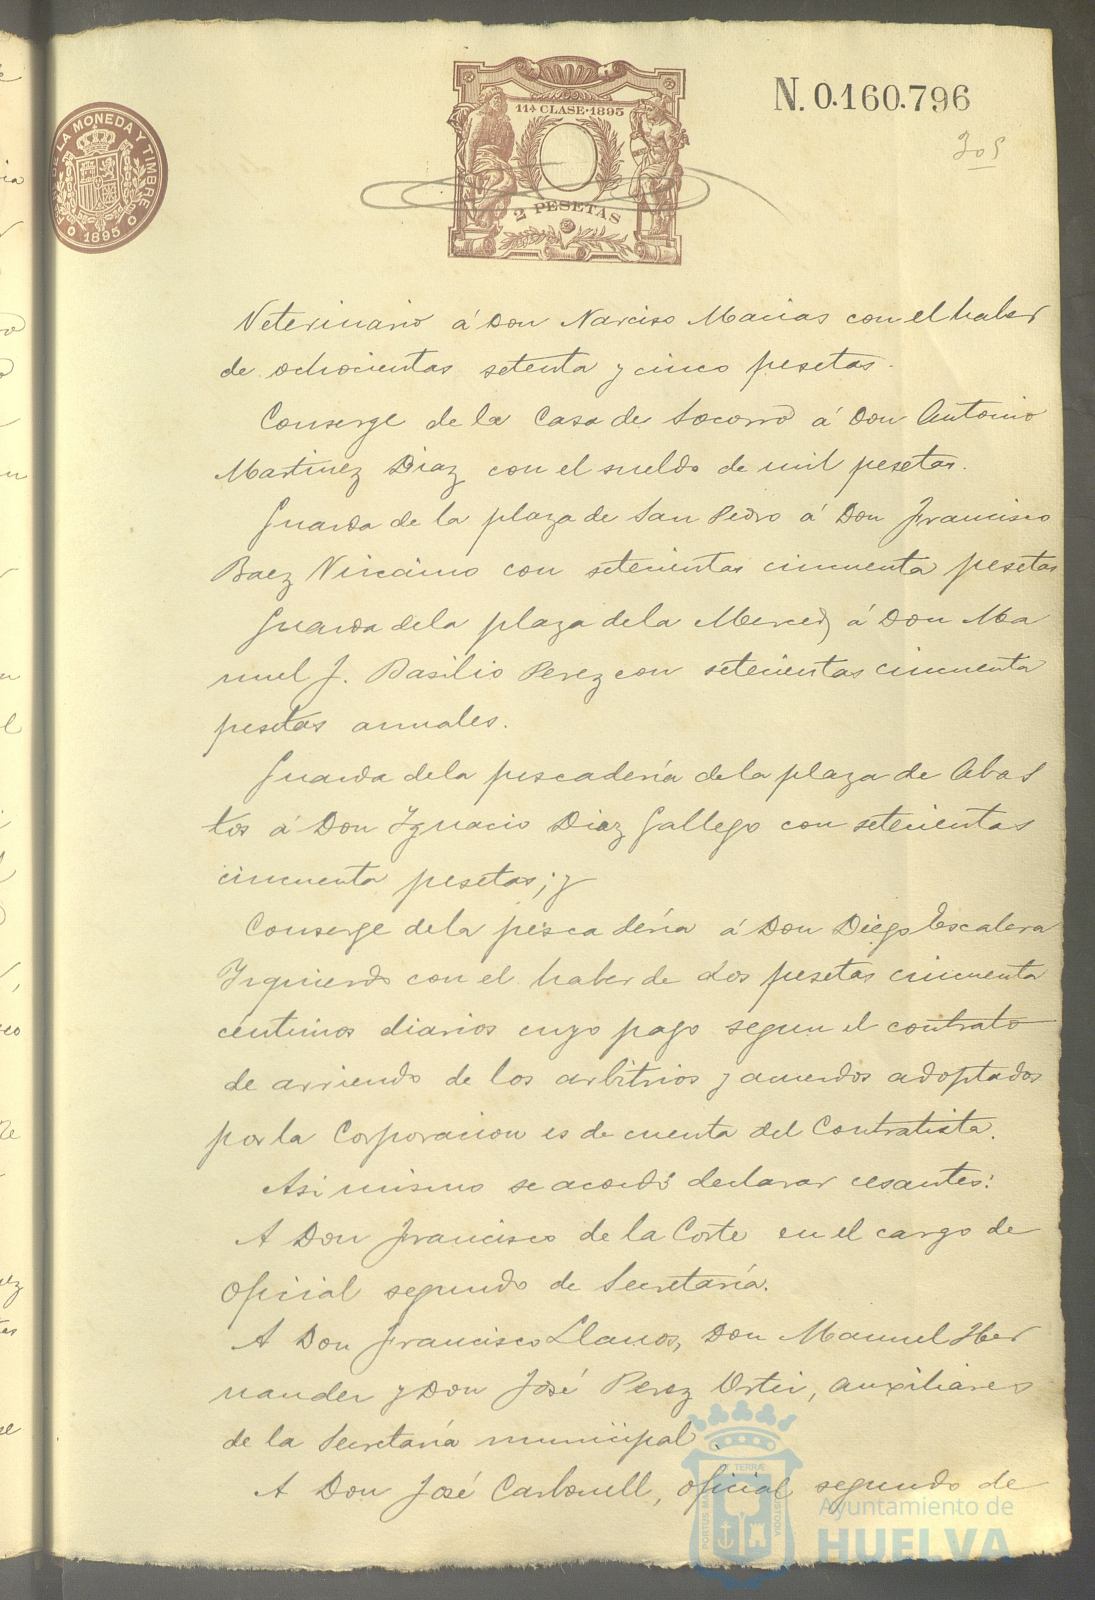 N. 0.160.796
305
DE LA MONEDA Y TIMBRE
1895
11ª CLASE·1895
2 PESETAS
Veterinario á Don Narciso Macias con el haber
de ochocientas setenta y cinco pesetas.
Conserge de la Casa de Socorro á Don Antonio
Martinez Diaz con el sueldo de mil pesetas.
Guarda de la plaza de San Pedro á Don Francisco
Baez Vizcaino con setecientas cincuenta pesetas
Guarda de la plaza de la Merced á Don Ma
nuel J. Basilio Perez con setecientas cincuenta
pesetas anuales.
Guarda de la pescadería de la plaza de Abas
tos á Don Ignacio Diaz Gallego con setecientas
cincuenta pesetas; y
Conserge de la pescadería á Don Diego Escalera
Izquierdo con el haber de dos pesetas cincuenta
centimos diarios cuyo pago segun el contrato
de arriendo de los arbitrios y acuerdos adoptados
por la Corporacion es de cuenta del Contratista.
Asi mismo se acordó declarar cesantes:
A Don Francisco de la Corte en el cargo de
Oficial segundo de Secretaría.
A Don Francisco Llanos, Don Manuel Her
nandez y Don José Perez Ortiz, auxiliares
de la Secretaría municipal.
A Don José Carbonell, oficial segundo de
PORTUS MARIS ET TERRAE CUSTODIA
Ayuntamiento de
HUELVA